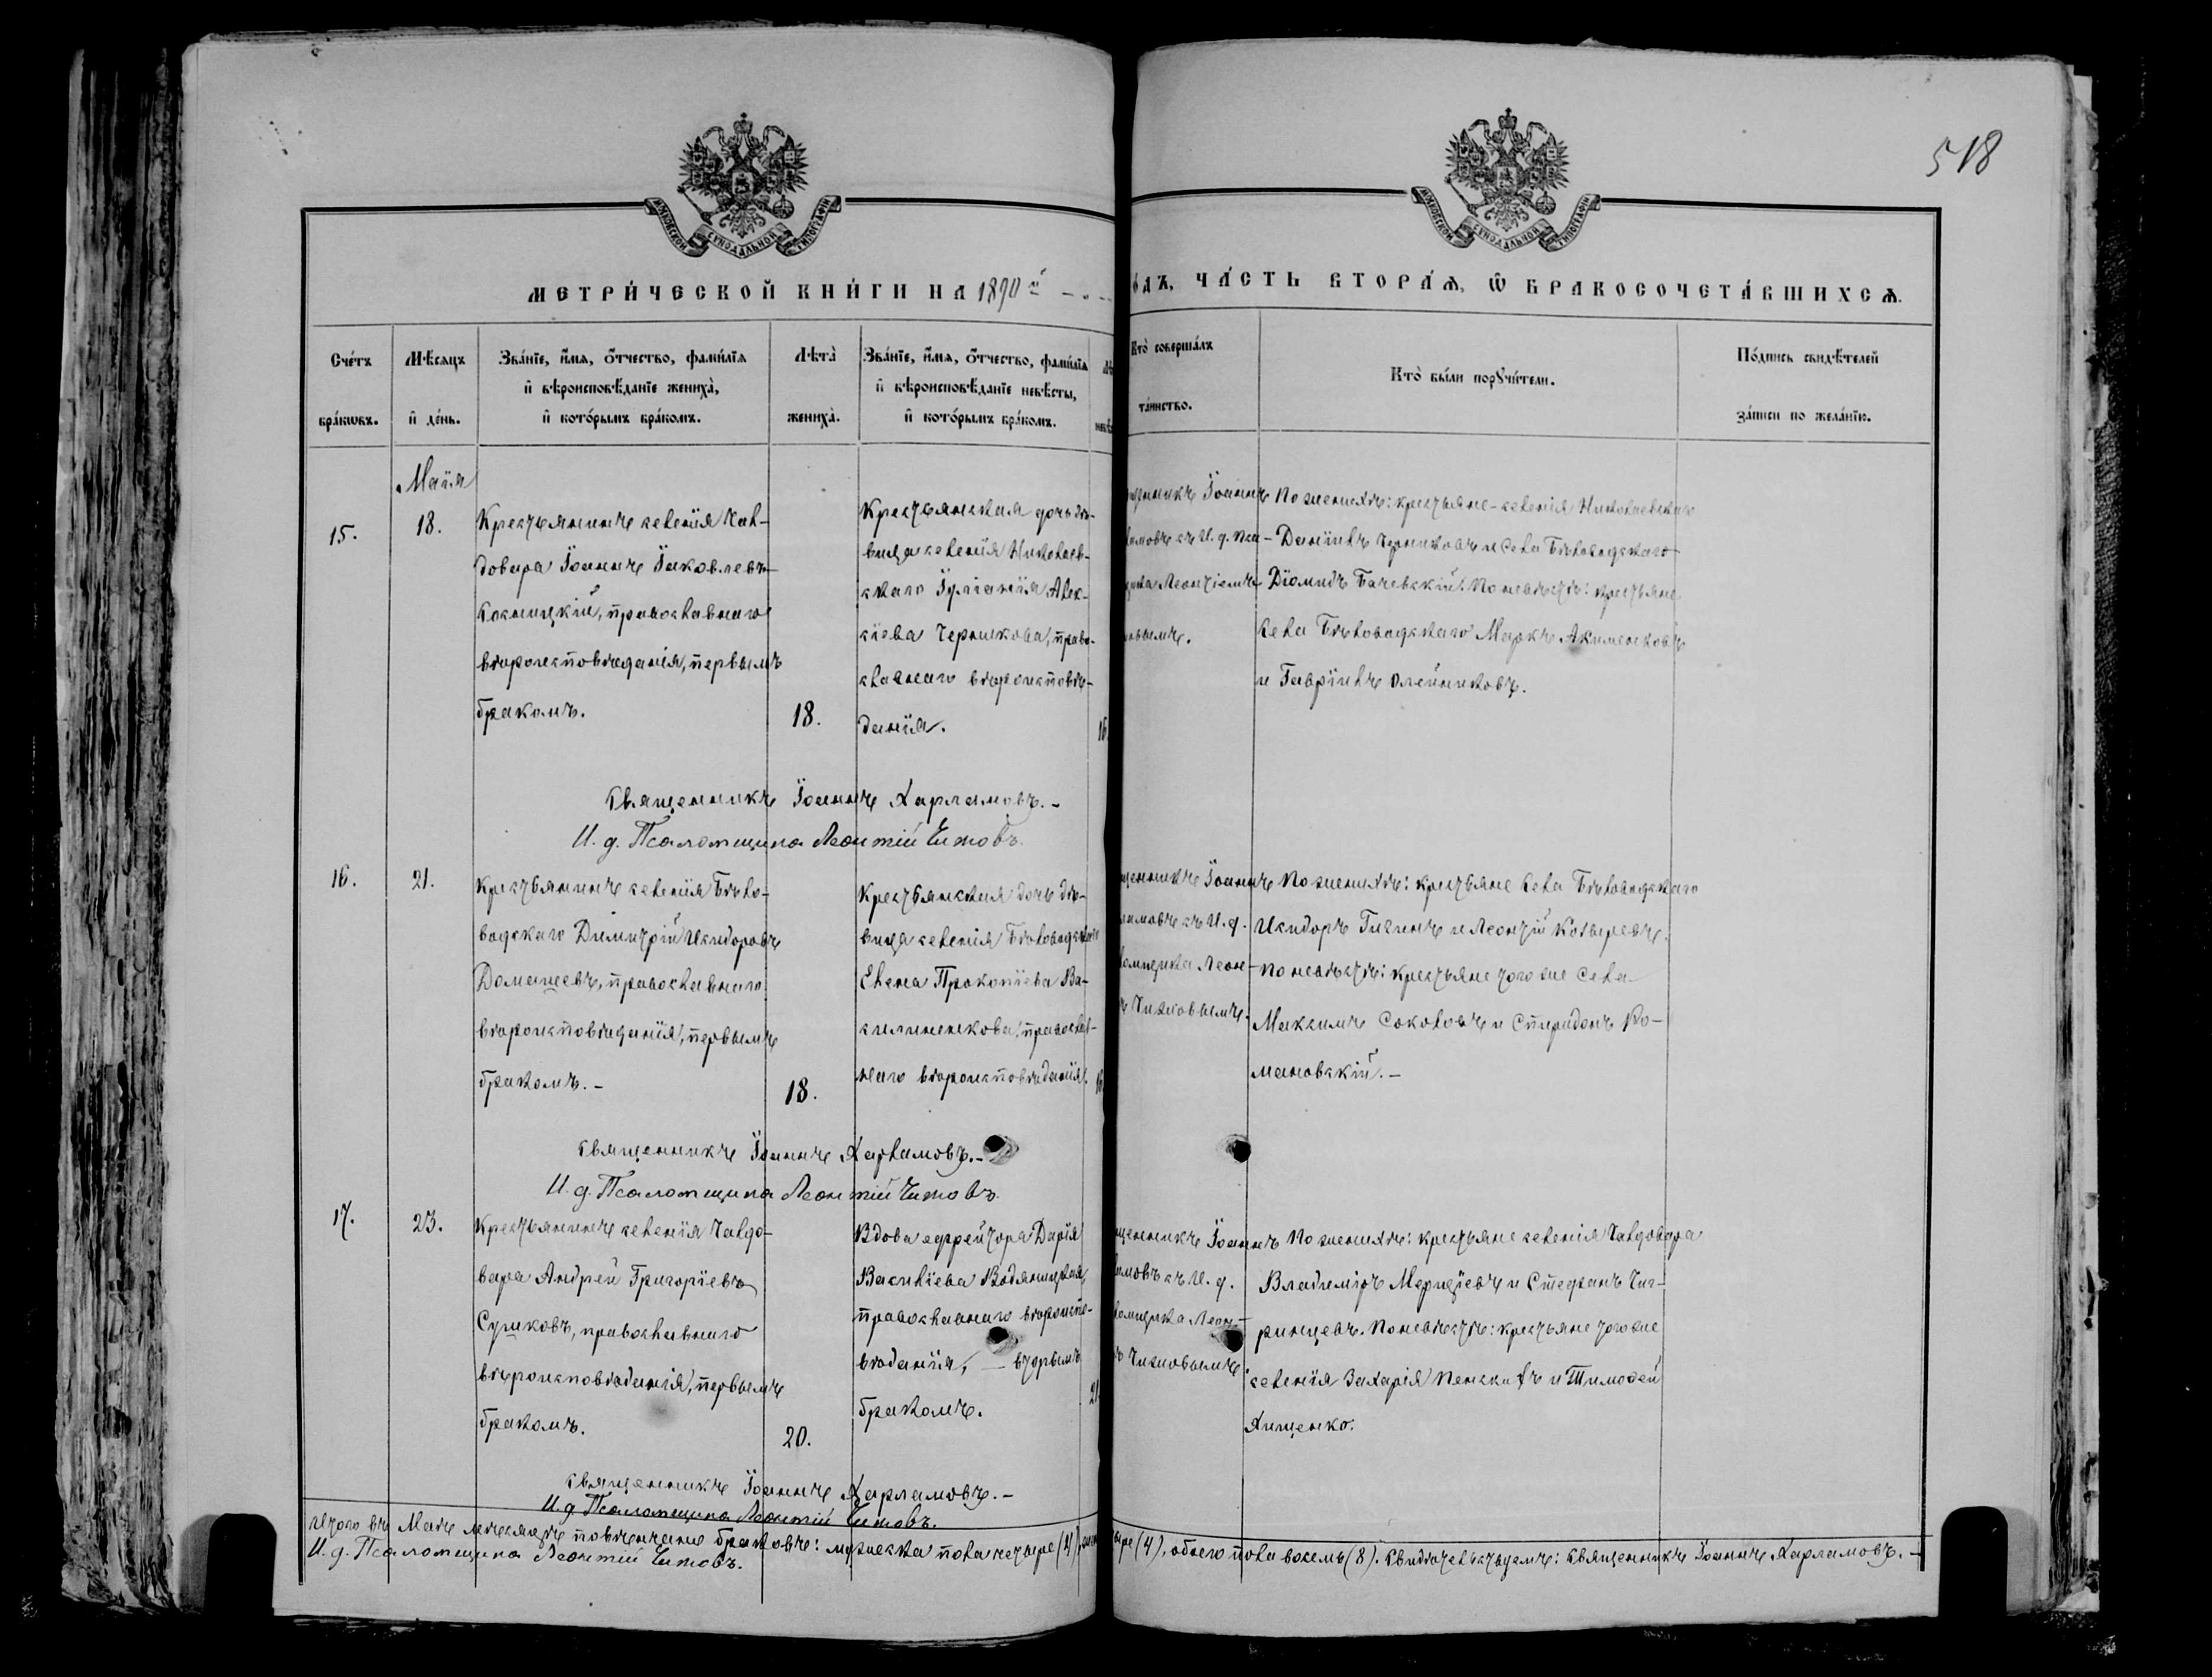 518
МОСКОВСКОЙ СѴНОДАЛЬНОЙ ТИПОГРАФІИ
МОСКОВСКОЙ СѴНОДАЛЬНОЙ ТИПОГРАФІИ
МЕТРИ́ЧЕСКОЙ КНИ́ГИ НА 1890й
о́дъ, ЧА́СТЬ ВТОРА́Ѧ, Ѽ БРАКОСОЧЕТА́ВШИХСѦ.
Сче́тъ бра́кѡвъ.
Мѣ́сяцъ и҆ де́нь.
Зва́нїе, и҆́мѧ, ѻ҆́тчество, фами́лїѧ
и҆ вѣроисповѣ́данїе жениха̀,
и҆ кото́рымъ бра́комъ.
Лѣта̀ жениха̀.
Зва́нїе, и҆́мѧ, ѻ҆́тчество, фами́лїѧ
и҆ вѣроисповѣ́данїе невѣ́сты,
и҆ кото́рымъ бра́комъ.
Кто̀ соверша́лъ
та́инство.
Кто̀ бы́ли порꙋчи́тели.
По́дпись свидѣ́телей
за́писи по жела́нїю.
Маія
15.
18.
Крестьянинъ селенія
довара Іоаннъ Іаковлевъ
православнаго
вѣроисповѣданія, первымъ
бракомъ.
18.
Крестьянская дочь дѣ-
вица селенія Николаев-
скаго Іуліанія Алек-
сіева Черникова, право-
славнаго вѣроисповѣ-
данія.
Іоаннъ
съ И. д. Пса-
Леонтіемъ
По женихѣ: крестьяне селенія Николаевскаго
Даніилъ Черниковъ и села Бѣловодскаго
Діомидъ Бачевскій. По невѣстѣ: крестьяне
села Бѣловодскаго Маркъ Акименковъ
и Гавріилъ Олейниковъ.
Священникъ Іоаннъ Харламовъ.-
И. д. Псаломщика Леонтій Чижовъ.
16.
21.
Крестьянинъ селенія Бѣло-
водскаго Димитрій Исидоровъ
Домашевъ, православнаго
вѣроисповѣданія, первымъ
бракомъ.-
18.
Крестьянская дочь дѣ-
вица селенія Бѣловодскаго
Елена Прокопіева Ва-
силиненкова, православ-
наго вѣроисповѣданія.
Іоаннъ
съ И. д.
Леон-
Чижовымъ.
По женихѣ: крестьяне села Бѣловодскаго
Исидоръ и Леонтій Козыревъ.
По невѣстѣ: крестьяне того же села
Максимъ Соколовъ и Спиридонъ Ро-
мановскій.-
Священникъ Іоаннъ Харламовъ.-
И. д. Псаломщика Леонтій Чижовъ.
17.
23.
Крестьянинъ селенія Чалдо-
вара Андрей Григоріевъ
Сушковъ, православнаго
вѣроисповѣданія, первымъ
бракомъ.
20.
Вдова ефрейтора Дарія
Василіева Водяницкая,
православнаго вѣроиспо-
вѣданія, - вторымъ
бракомъ.
Іоаннъ
съ И. д.
Леон-
Чижовымъ.
По женихѣ: крестьяне селенія Чалдовара
Владиміръ и Стефанъ Чиг-
ринцевъ. По невѣстѣ: крестьяне того же
селенія Захарія и Тимоѳей
Ященко.
Священникъ Іоаннъ Харламовъ.-
И. д. Псаломщика Леонтій Чижовъ.
Итого въ Маѣ мѣсяцѣ повѣнчано браковъ: мужеска пола четыре (4), (4), обоего пола восемь (8). Свидѣтельствуемъ: Священникъ Іоаннъ Харламовъ.-
И. д. Псаломщика Леонтій Чижовъ.